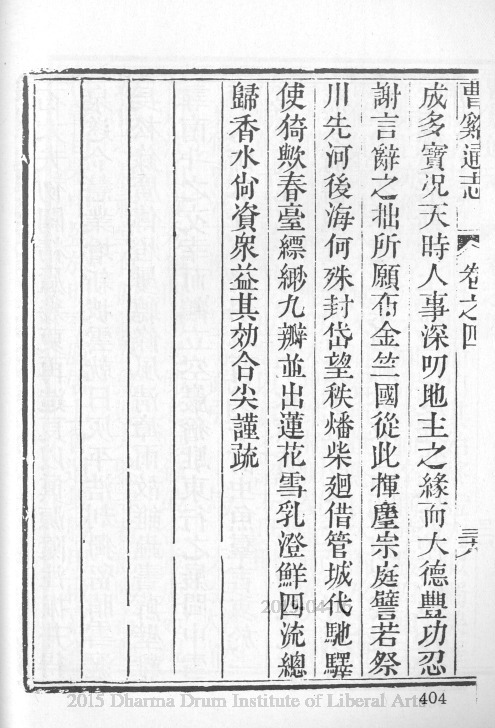 曹谿通志 卷之四 三六
成多寶况天時人事深叨地主之緣而大德豐功忍
謝言辭之拙所願布金竺國從此揮麈崇庭譬若祭
川先河後海何殊封岱望秩燔柴廻借管城代馳驛
使猗歟春臺縹緲九瓣並出蓮花雪乳澄鮮四流總
歸香水尙資衆益其効合尖謹疏
404
2015 Dharma Drum Institute of Liberal Arts